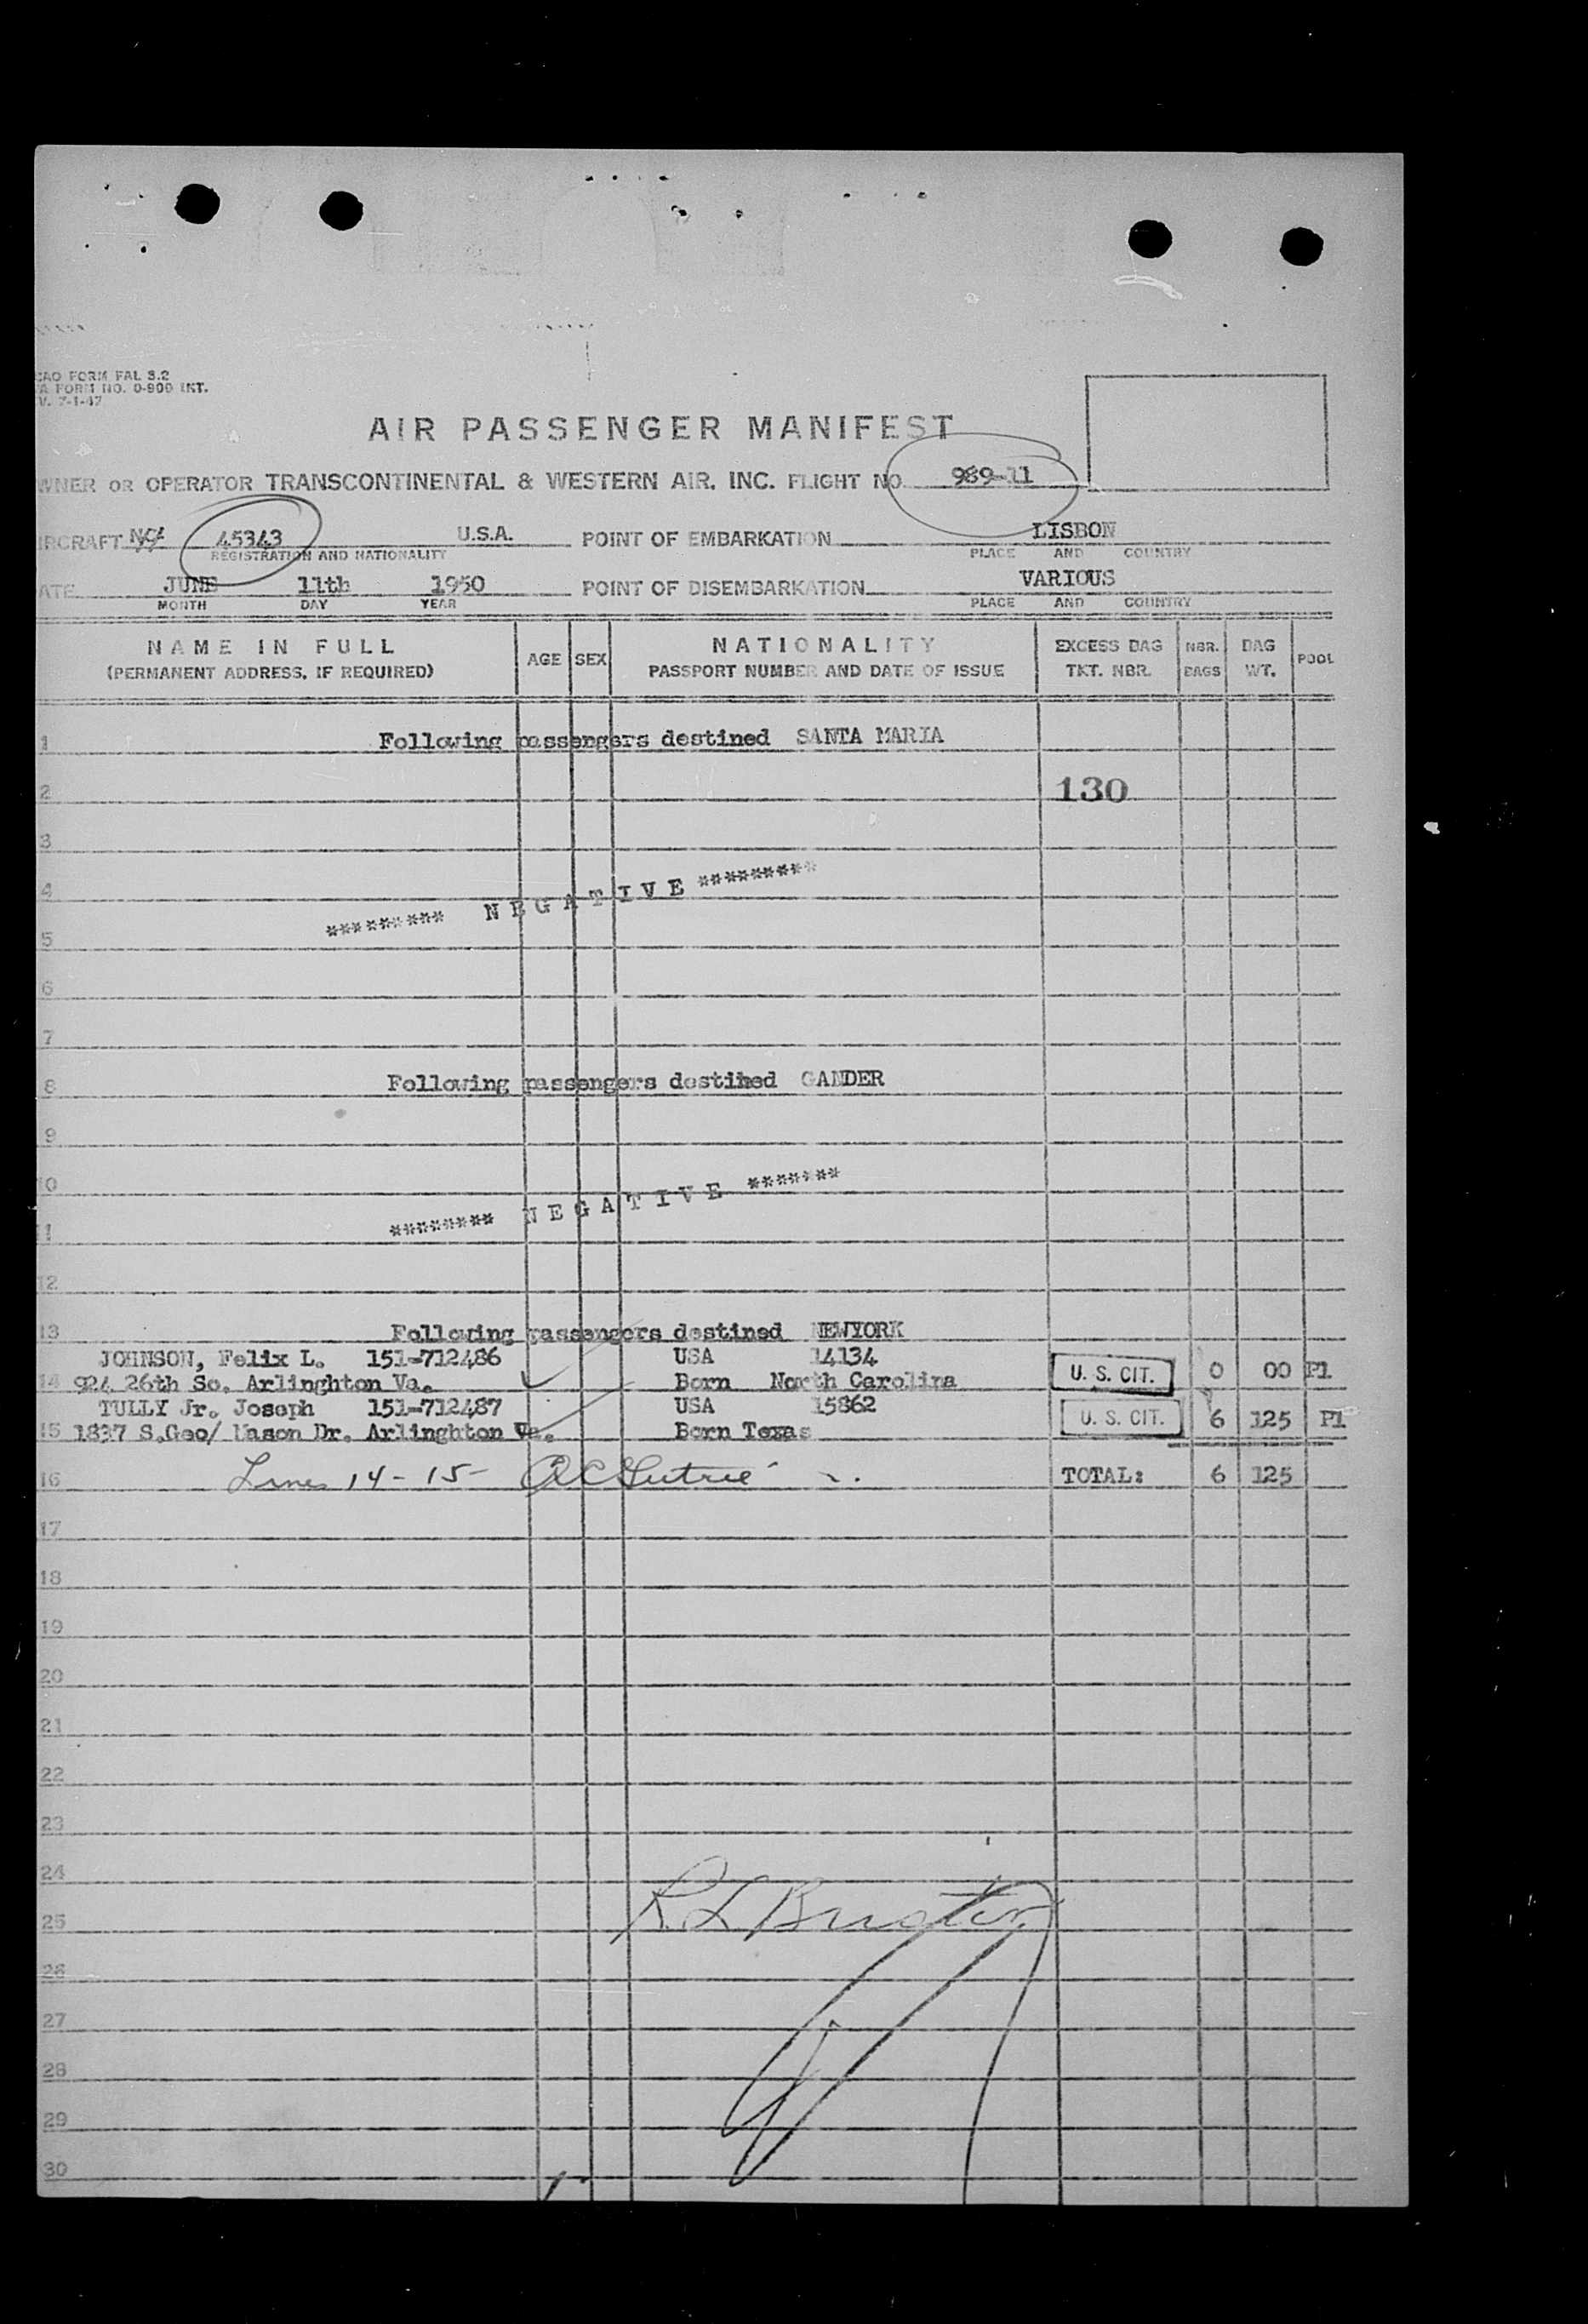 CAO FORM FAL 3.2
A FORM NO. 0-800 INT.
V. 7-1-47
AIR PASSENGER MANIFEST
WNER OR OPERATOR TRANSCONTINENTAL & WESTERN AIR, INC. FLIGHT NO. 989-11
IRCRAFT 45343 U.S.A. POINT OF EMBARKATION LISBON
REGISTRATION AND NATIONALITY PLACE AND COUNTRY
ATE JUNE 11th 1950 POINT OF DISEMBARKATION VARIOUS
MONTH DAY YEAR PLACE AND COUNTRY
NAME IN FULL AGE SEX NATIONALITY EXCESS BAG NBR. BAG POOL
(PERMANENT ADDRESS, IF REQUIRED) PASSPORT NUMBER AND DATE OF ISSUE TKT. NBR. BAGS WT.
1 Following passengers destined SANTA MARIA
2 130
3
4 ********* NEGATIVE *********
5
6
7
8 Following passengers destined GANDER
9
0
******** NEGATIVE *******
1
12
13 Following passengers destined NEWYORK
JOHNSON, Felix L. 151-712486 USA 14134
14 924 26th So. Arlinghton Va. Born North Carolina U. S. CIT. 0 00 P1
TULLY Jr. Joseph 151-712487 USA 15862
15 1837 S.Geo/ Mason Dr. Arlinghton Va. Born Texas U. S. CIT. 6 125 P1
16 Lines 14-15- TOTAL: 6 125
17
18
19
20
21
22
23
24
25
26
27
28
29
30